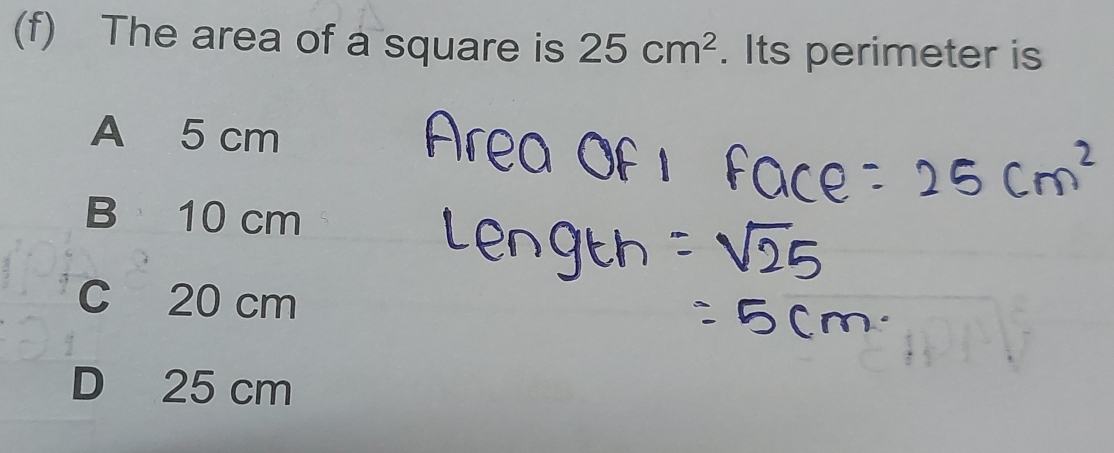 (f) The area of a square is 25 cm². Its perimeter is
A 5 cm
B 10 cm
C 20 cm
D 25 cm
Area OF 1 Face = 25 cm²
Length = √25
= 5 cm.